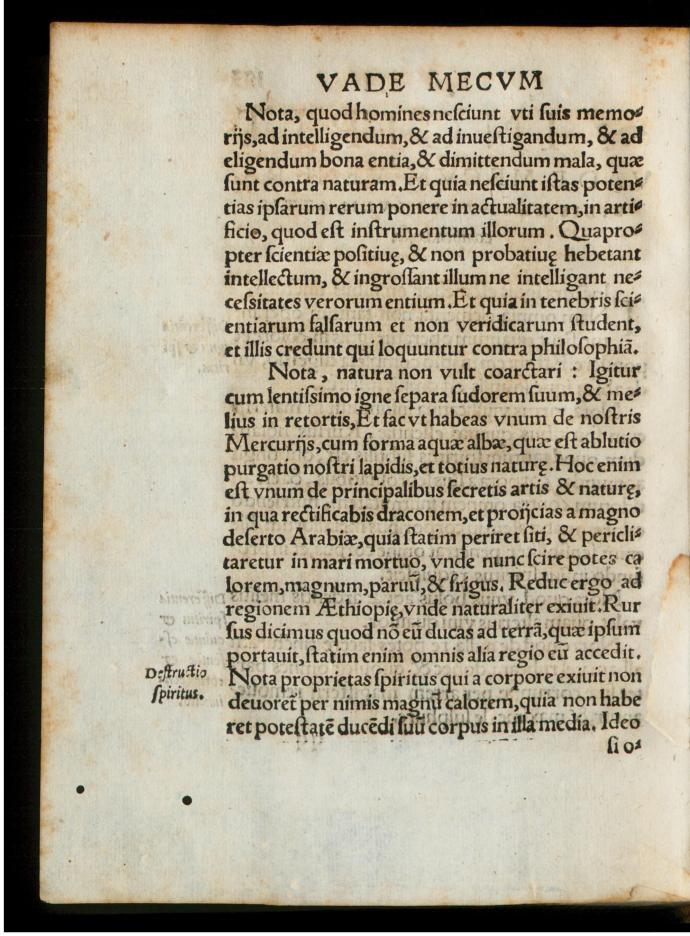 VADE MECVM
Nota, quod homines nesciunt vti suis memo⸗
rijs, ad intelligendum, & ad inuestigandum, & ad
eligendum bona entia, & dimittendum mala, quæ
sunt contra naturam. Et quia nesciunt istas poten⸗
tias ipsarum rerum ponere in actualitatem, in arti⸗
ficio, quod est instrumentum illorum. Quapro⸗
pter scientiæ positiuę, & non probatiuę hebetant
intellectum, & ingrossant illum ne intelligant ne⸗
cessitates verorum entium. Et quia in tenebris sci⸗
entiarum falsarum et non veridicarum student,
et illis credunt qui loquuntur contra philosophiã.
Nota, natura non vult coarctari : Igitur
cum lentissimo igne separa sudorem suum, & me⸗
lius in retortis, Et fac vt habeas vnum de nostris
Mercurijs, cum forma aquæ albæ, quæ est ablutio
purgatio nostri lapidis, et totius naturę. Hoc enim
est vnum de principalibus secretis artis & naturę,
in qua rectificabis draconem, et proijcias a magno
deserto Arabiæ, quia statim periret siti, & pericli⸗
taretur in mari mortuo, vnde nunc scire potes ca
lorem, magnum, paruũ, & frigus. Reduc ergo ad
regionem Æthiopię, vnde naturaliter exiuit. Rur
sus dicimus quod nõ eũ ducas ad terrã, quæ ipsum
portauit, statim enim omnis alia regio eũ accedit.
Destructio
spiritus.
Nota proprietas spiritus qui a corpore exiuit non
deuoret̃ per nimis magnũ calorem, quia non habe
ret potestatẽ ducẽdi suũ corpus in illa media. Ideo
si o⸗